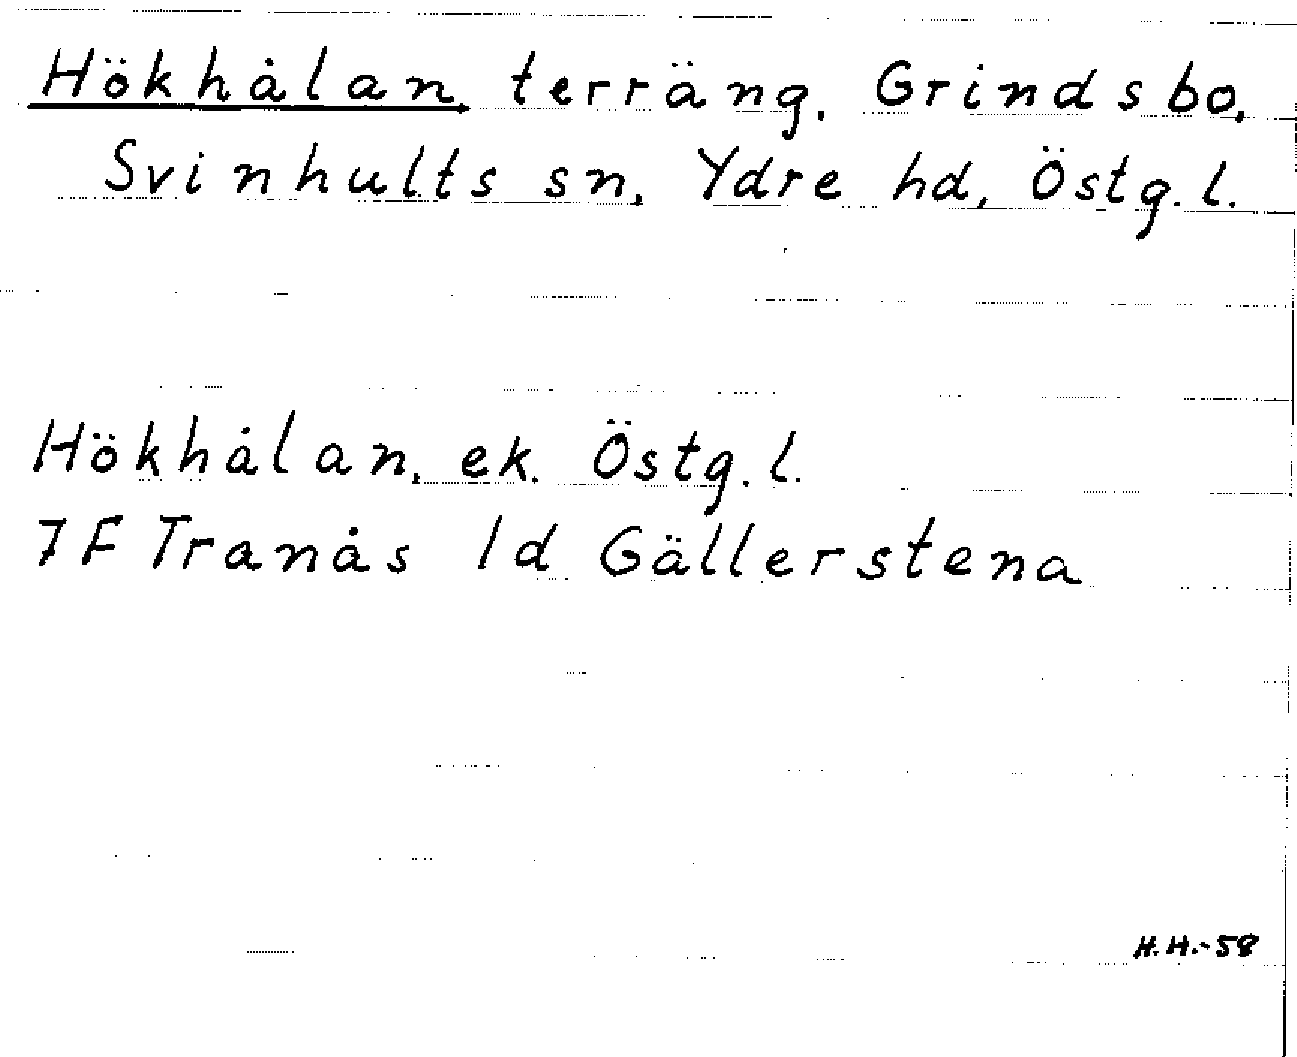 Hökhålan, terräng, Grindsbo,
Svinhults sn, Ydre hd, Östg.l.
Hökhålan, ek. Östg.l.
7F Tranås 1d Gällerstena
H.H.-58